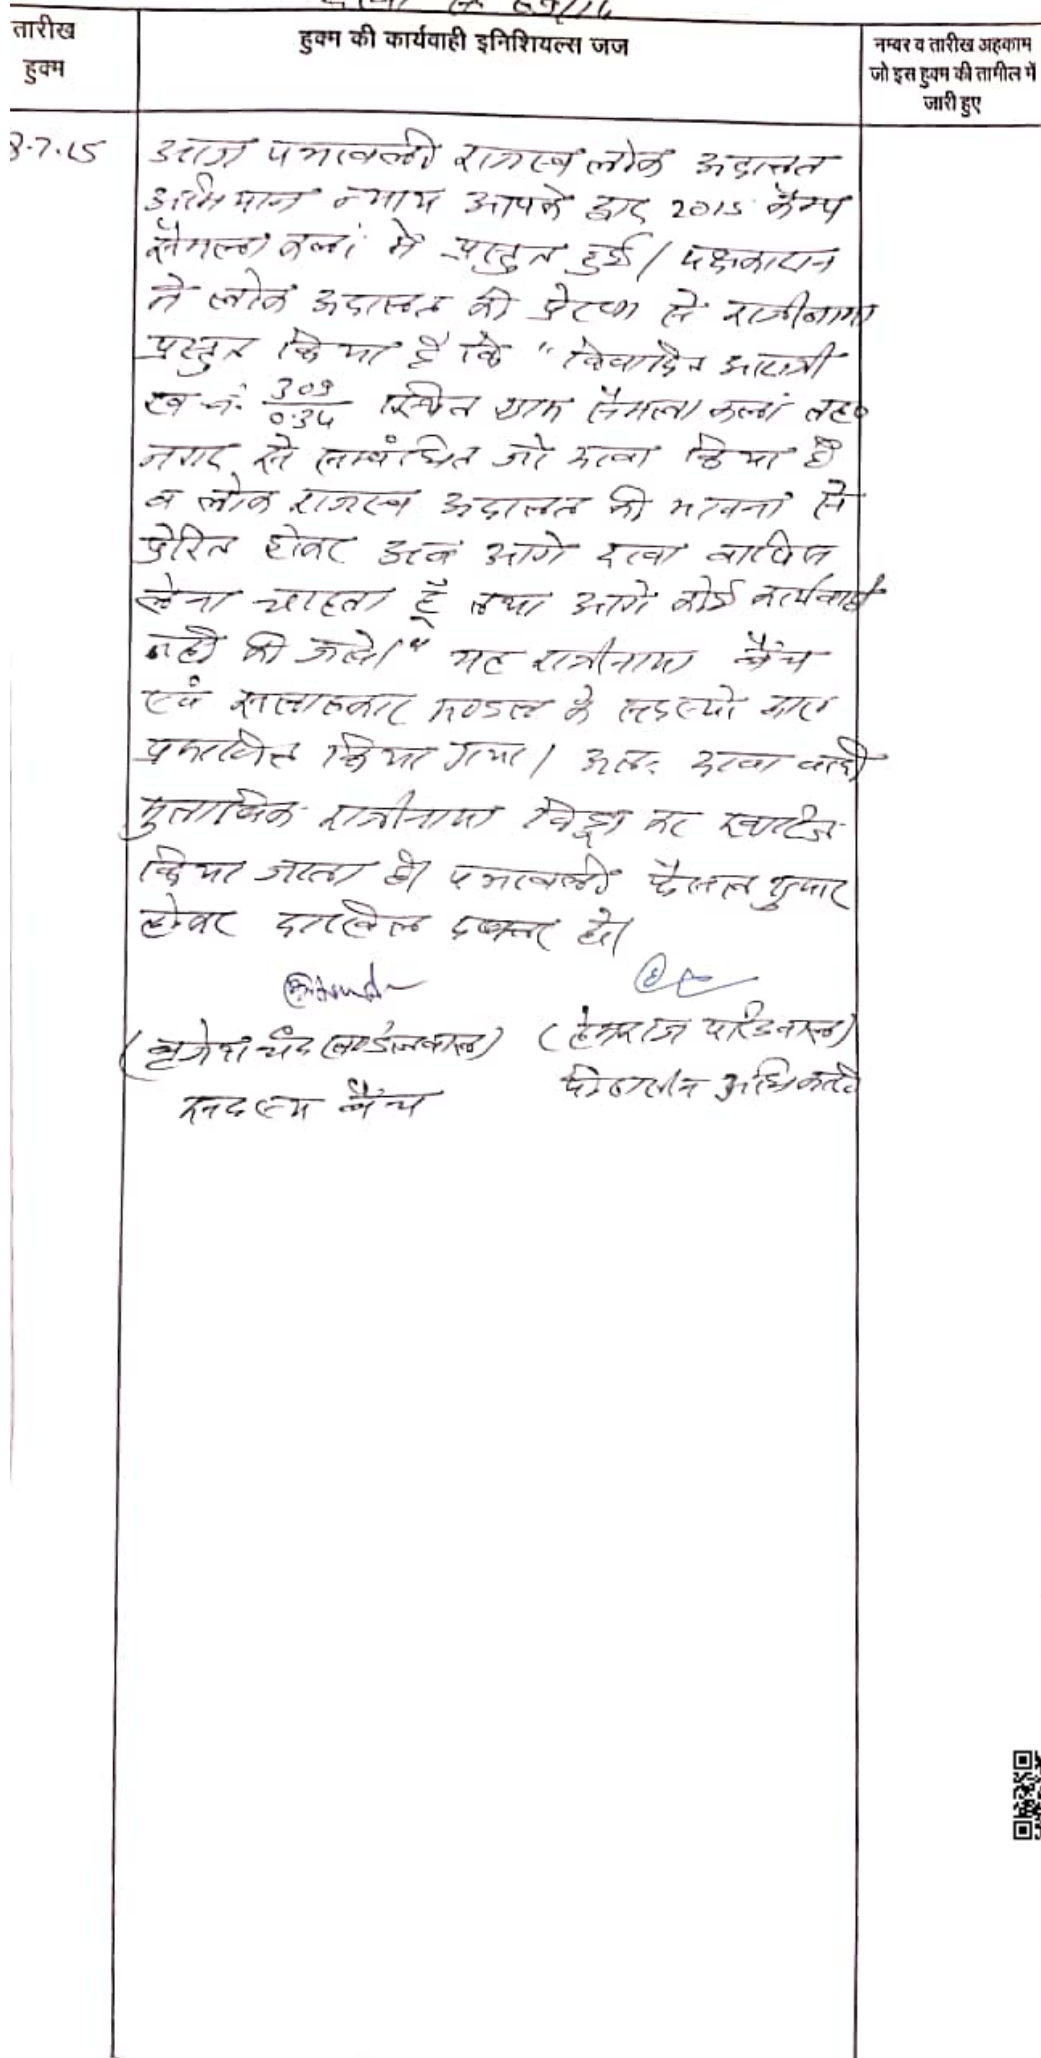 तारीख
हुक्म
हुक्म की कार्यवाही इनिशियल्स जज
नम्बर व तारीख अहकाम
जो इस हुक्म की तामील में
जारी हुए
8-7-15
आज पत्रावली राजस्व लोक अदालत
अभियान न्याय आपके द्वार 2015 कैम्प
सैमला कलां में प्रस्तुत हुई। पक्षकारान
ने लोक अदालत की प्रेरणा से राजीनामा
प्रस्तुत किया है कि "विवादित आराजी
ख नं. 309/0.34 स्थित ग्राम सैमला कलां तह०
नगर से सम्बंधित जो दावा किया है
व लोक राजस्व अदालत की भावना से
प्रेरित होकर अब आगे दावा वापिस
लेना चाहता हूँ तथा आगे कोई कार्यवाही
नहीं की जावे।" यह राजीनामा बैंच
एवं सलाहकार मण्डल के सदस्यों द्वारा
प्रमाणित किया गया। अतः दावा वादी
मुताबिक राजीनामा विड्रा कर खारिज
किया जाता है। पत्रावली फैसल शुमार
होकर दाखिल दफ्तर हो।
(बृजेश चंद खण्डेलवाल)
सदस्य बैंच
(हेमराज परिडवाल)
पीठासीन अधिकारी